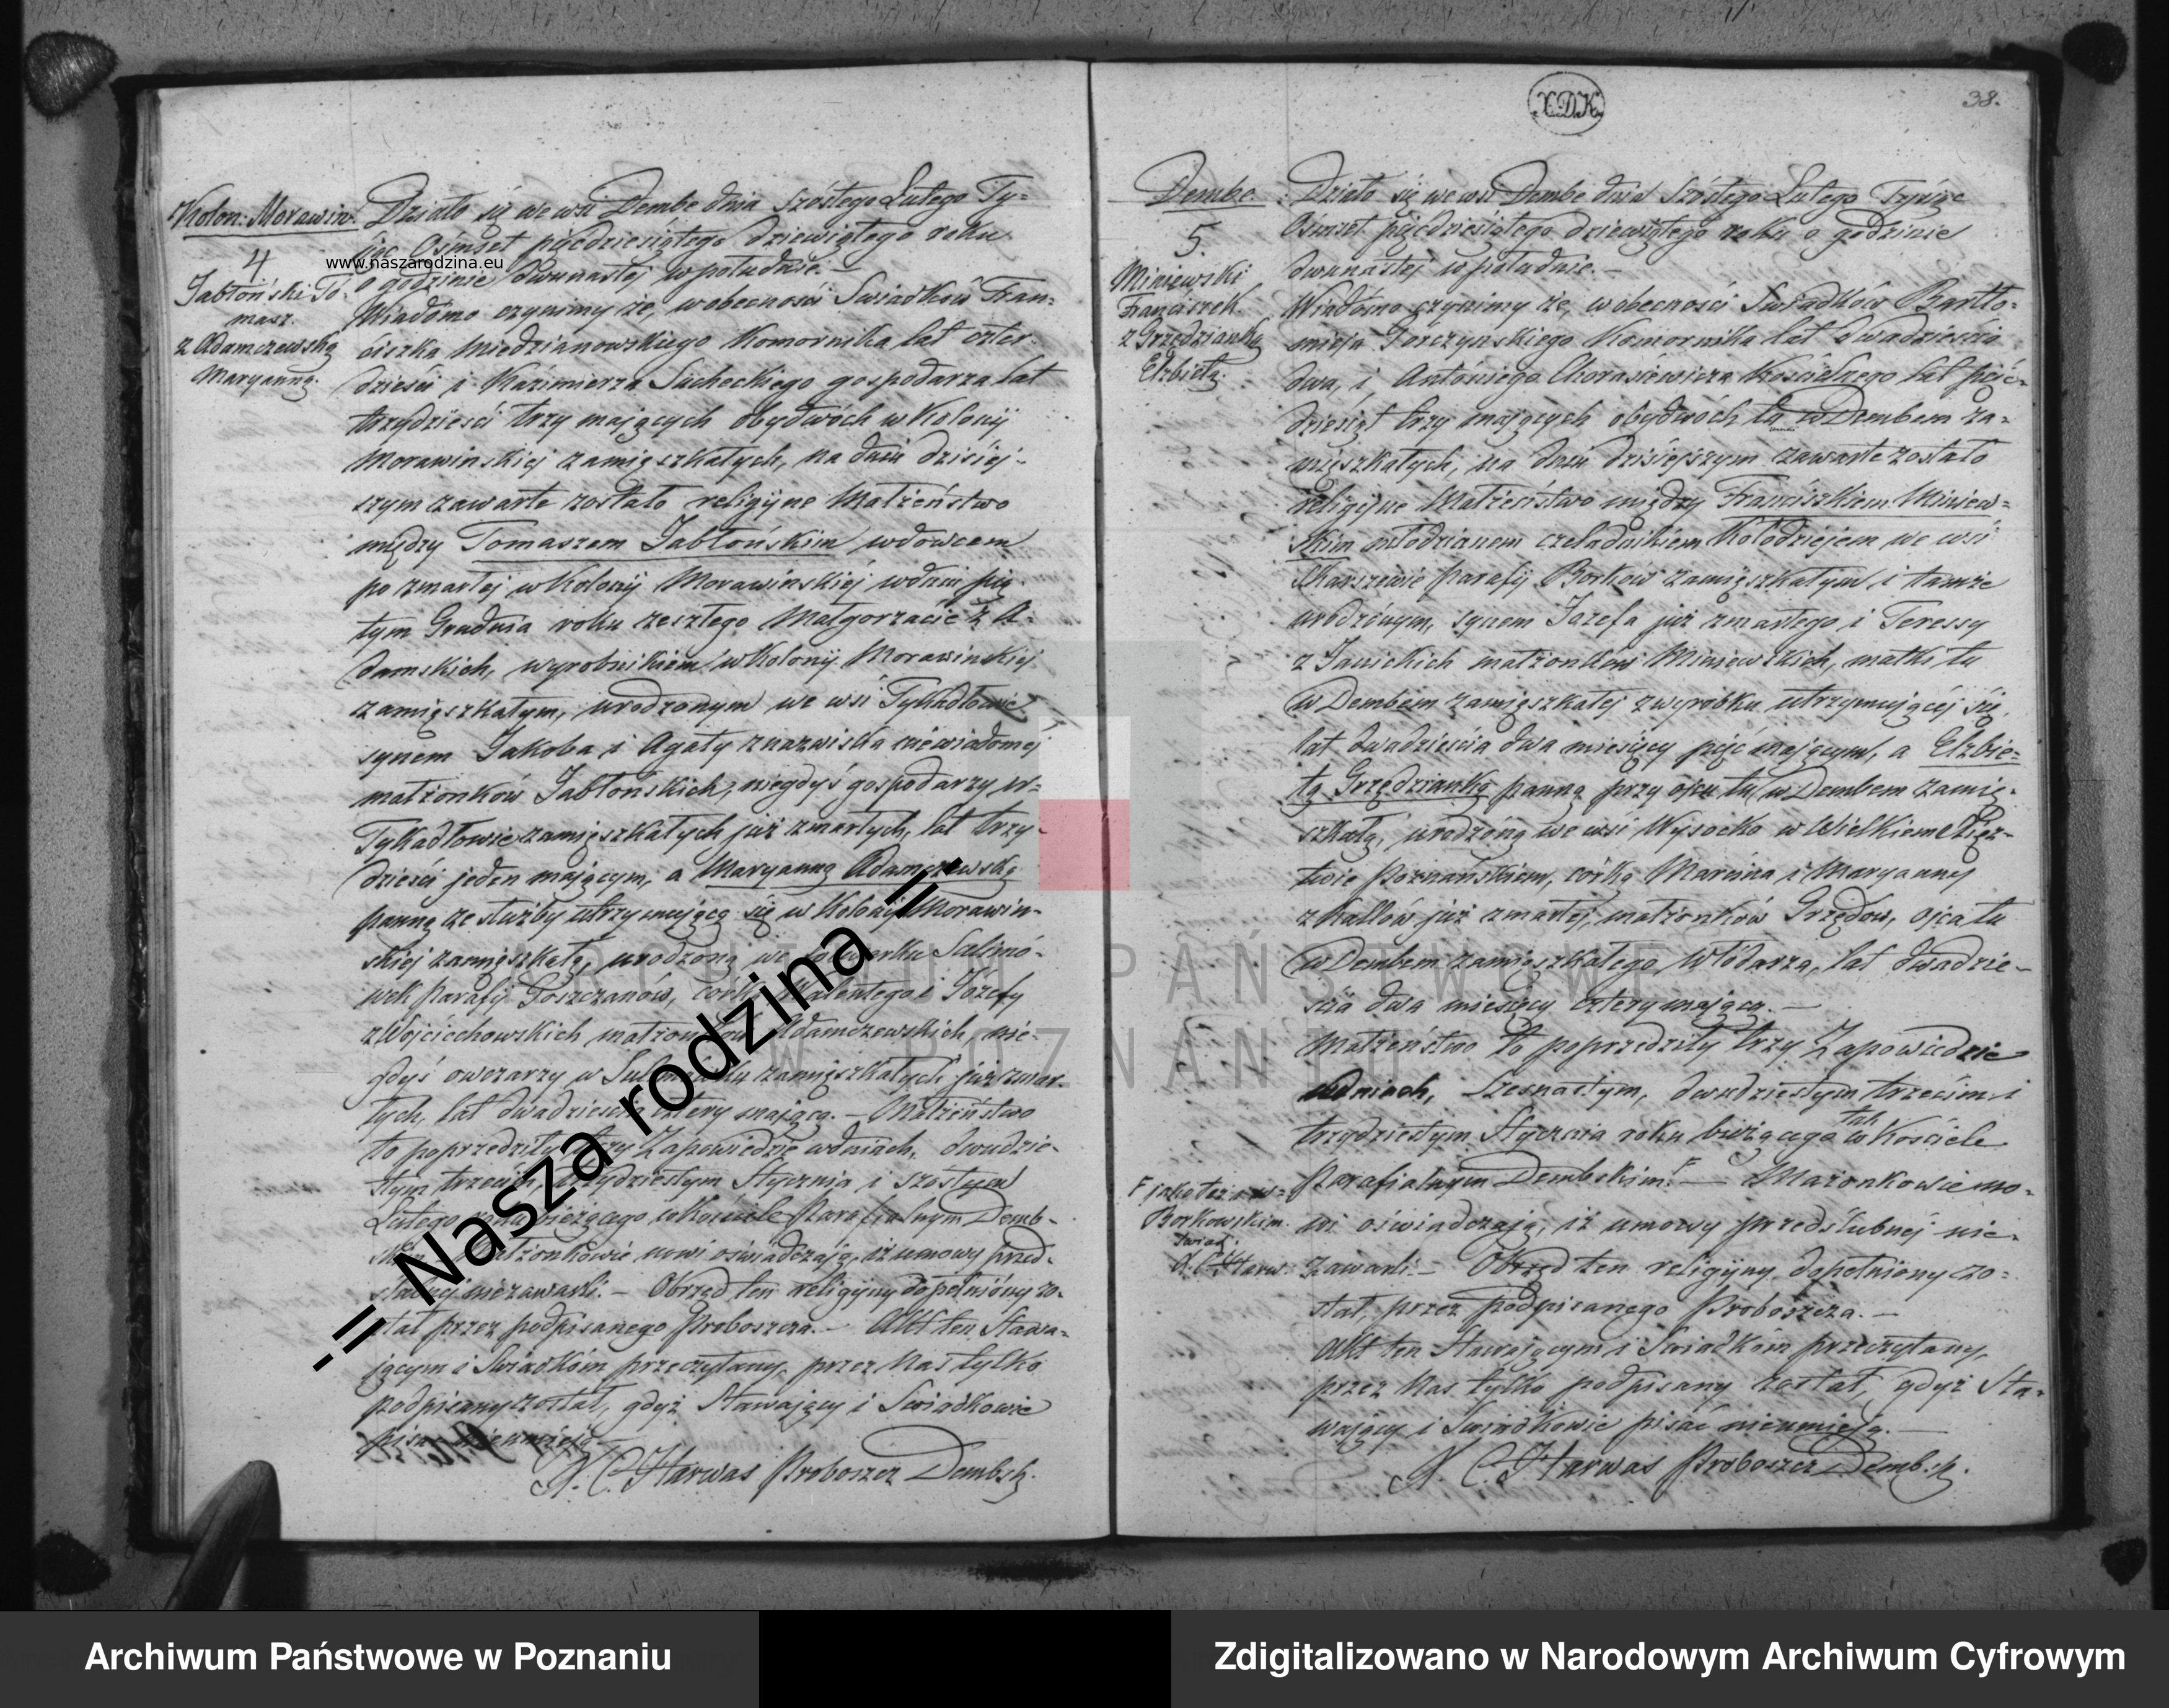 Kolon: Morawin.
4
Jabłoński To-
masz.
z Adamczewską
Maryanną.
Działo się we wsi Dembe dnia Szóstego Lutego Ty-
siąc Ośmset pięćdziesiątego dziewiątego roku
www.naszarodzina.eu
o godzinie dwunastej w południe. —
Wiadomo czynimy że, w obecności Swiadków Fran-
ciszka Miedzianowskiego Komornika lat czter-
dzieści i Kazimierza Sucheckiego gospodarza lat
trzydzieści trzy mających obydwóch w Kolonij
Morawinskiej zamięszkałych, na dniu dzisiej-
szym zawarte zostało religijne Małżeństwo
między Tomaszem Jabłońskim wdowcem
po zmarłej w Kolonij Morawinskiej w dniu pią-
tym Grudnia roku zeszłego Małgorzacie z A-
damskich, wyrobnikiem w Kolonij Morawinskiej
zamięszkałym, urodzonym we wsi Tykadłowie
synem Jakóba i Agaty z nazwiska niewiadomej
małżonków Jabłońskich, niegdyś gospodarzy w
Tykadłowie zamięszkałych już zmarłych, lat trzy-
dzieści jeden mającym, a Maryanną Adamczewską
panną ze służby utrzymującą się w Kolonij Morawin-
skiej zamięszkałą, urodzoną we Sulmó-
wek parafij Goszczanów, córką Walentego i Józefy
z Wojciechowskich małżonków Adamczewskich, nie-
gdyś owczarzy w zamięszkałych już zmar-
łych, lat dwadzieścia cztery mającą. — Małżeństwo
to poprzedziły trzy Zapowiedzie w dniach, dwudzie-
stym trzecim, trzydziestym Stycznia i szóstym
Lutego roku bieżącego w Kościele Parafialnym Demb-
skim Małżonkowie nowi oświadczają, iż umowy przed-
ślubnej niezawarli. — Obrzęd ten religijny dopełniony zo-
stał przez podpisanego Proboszcza. — Akt ten Stawa-
jącym i Swiadkom przeczytany, przez Nas tylko
podpisany został, gdyż Stawający i Swiadkowie
pisać nieumieją. —
X. C. Harwas Proboszcz Dembsk.
-= Nasza rodzina =-
XDK
38.
Dembe.
5.
Miniewski
Franciszek.
z Grzędzianką
Elżbietą.
Działo się we wsi Dembe dnia Szóstego Lutego Tysiąc
Ośmset pięćdziesiątego dziewiątego roku o godzinie
dwunastej w południe. —
Wiadomo czynimy że, w obecności Swiadków Bartło-
mieja Gorczynskiego Komornika lat dwadzieścia
dwa, i Antoniego Chorasiewicza Kościelnego lat pięć-
dziesiąt trzy mających obydwóch tu w Dembem za-
mięszkałych, na dniu dzisiejszym zawarte zostało
religijne Małżeństwo między Franciszkiem Miniew-
skim młodzianem czeladnikiem Kołodziejem we wsi
Marszewie parafij Borków zamięszkałym, i tamże
urodzonym, synem Jozefa już zmarłego i Teressy
z Janickich małżonków Miniewskich, matki tu
w Dembem zamięszkałej z wyrobku utrzymującej się,
lat dwadzieścia dwa miesięcy pięć mającym, a Elżbie-
tą Grzędzianką panną przy ojcu tu w Dembem zamię-
szkałą, urodzoną we wsi Wysocko w Wielkiem Xięz-
twie Poznańskiem, córką Marcina i Maryanny
z Kallów już zmarłej, małżonków Grzędów, ojca tu
w Dembem zamięszkałego Włodarza, lat dwadzie-
ścia dwa miesięcy cztery mającą. —
Małżeństwo to poprzedziły trzy Zapowiedzie
w dniach, Szesnastym, dwudziestym trzecim i
trzydziestym Stycznia roku bieżącego tak w Kościele
Parafialnym Dembskim. — Małżonkowie no-
jako też i w
Borkowskim.
wi oświadczają, iż umowy przedślubnej nie-
zawarli. — Obrzęd ten religijny dopełniony zo-
stał, przez podpisanego Proboszcza. —
Akt ten Stawającym i Swiadkom przeczytany,
przez Nas tylko podpisany został, gdyż Sta-
wający i Swiadkowie pisać nieumieją. —
X. C. Harwas Proboszcz Dembsk.
ARCHIWUM PAŃSTWOWE
W POZNANIU
Archiwum Państwowe w Poznaniu
Zdigitalizowano w Narodowym Archiwum Cyfrowym